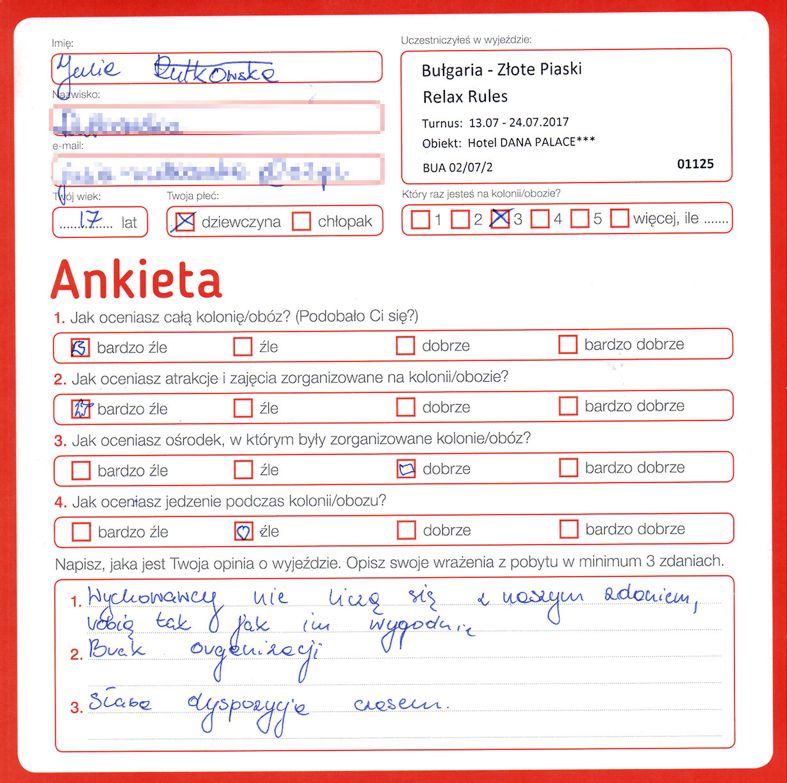 Imię:
Julia Rutkowska
Nazwisko:
e-mail:
Twój wiek:
17 lat
Twoja płeć:
dziewczyna chłopak
Uczestniczyłeś w wyjeździe:
Bułgaria - Złote Piaski
Relax Rules
Turnus: 13.07 - 24.07.2017
Obiekt: Hotel DANA PALACE***
BUA 02/07/2 01125
Który raz jesteś na kolonii/obozie?
1 2 3 4 5 więcej, ile .......
Ankieta
1. Jak oceniasz całą kolonię/obóz? (Podobało Ci się?)
bardzo źle źle dobrze bardzo dobrze
2. Jak oceniasz atrakcje i zajęcia zorganizowane na kolonii/obozie?
bardzo źle źle dobrze bardzo dobrze
3. Jak oceniasz ośrodek, w którym były zorganizowane kolonie/obóz?
bardzo źle źle dobrze bardzo dobrze
4. Jak oceniasz jedzenie podczas kolonii/obozu?
bardzo źle źle dobrze bardzo dobrze
Napisz, jaka jest Twoja opinia o wyjeździe. Opisz swoje wrażenia z pobytu w minimum 3 zdaniach.
1. Wychowawcy nie liczą się z naszym zdaniem,
robią tak jak im wygodnie
2. Brak organizacji
3. Słaba dyspozycja czasem.